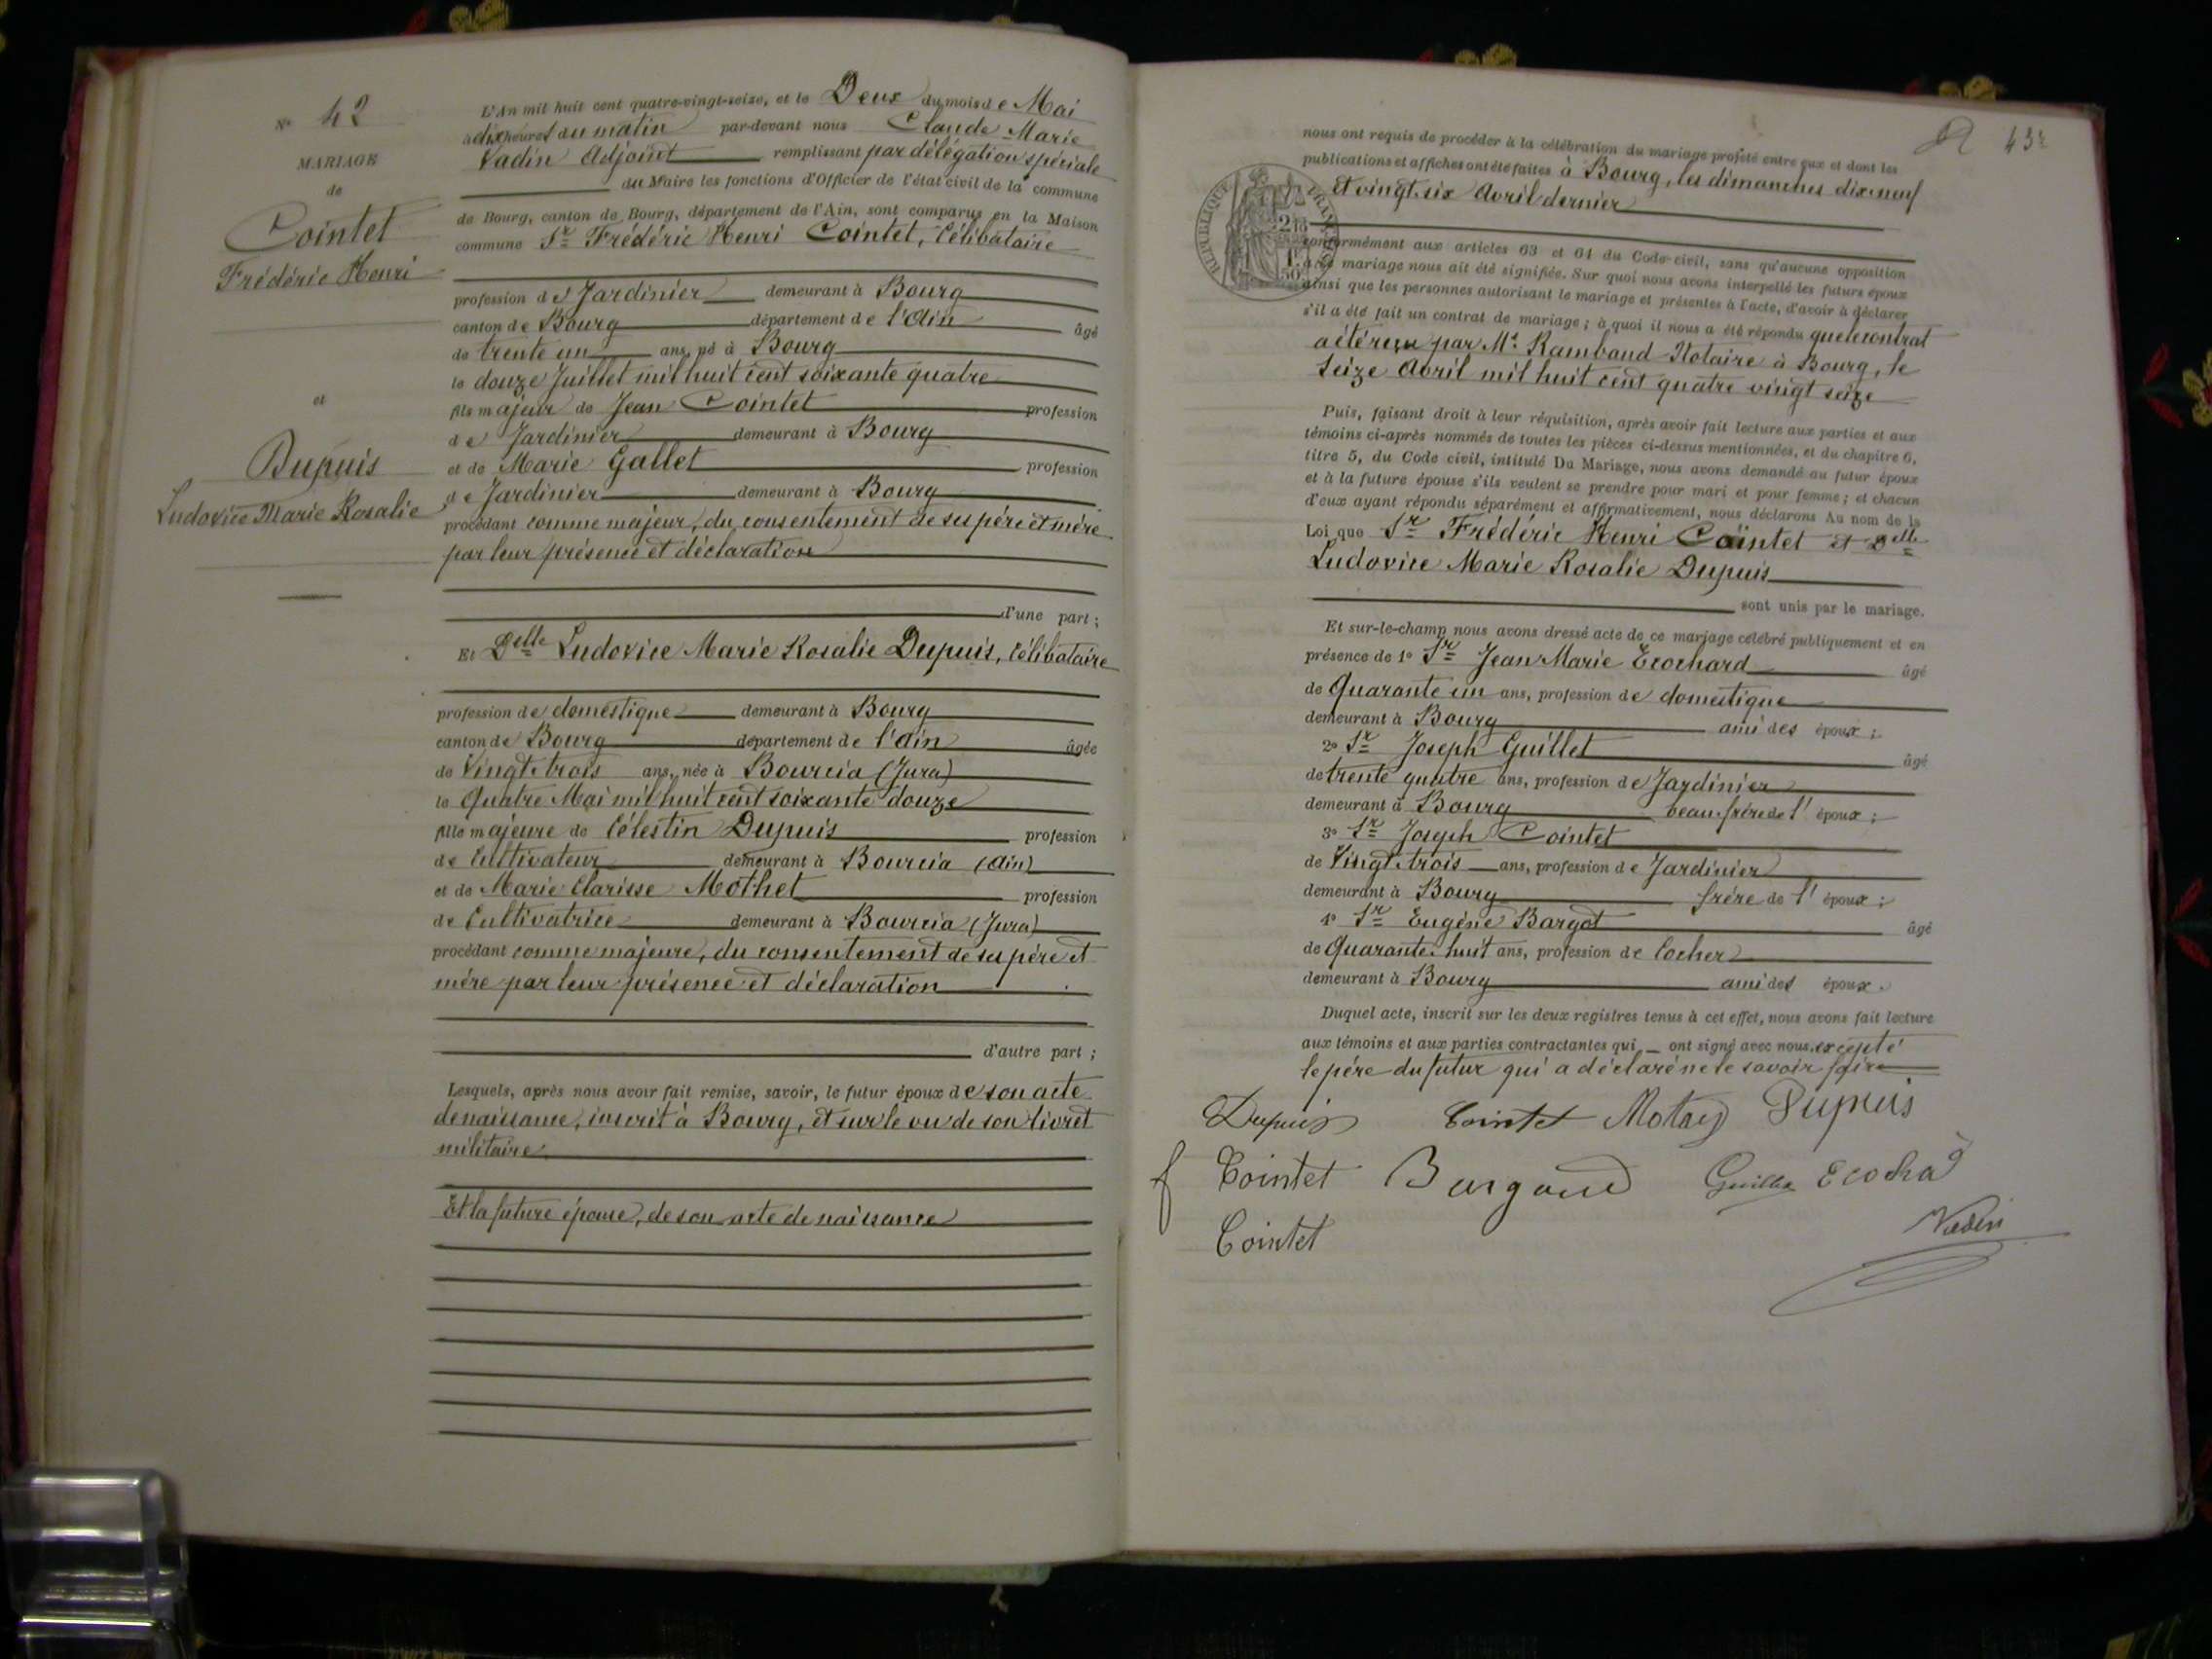 N° 42
MARIAGE
de
Cointet
Frédéric Henri
et
Dupuis
Ludovice Marie Rosalie
L'An mil huit cent quatre-vingt-seize, et le Deux du mois de Mai
à dix heures du matin par-devant nous Claude-Marie
Vadin Adjoint remplissant par délégation spéciale
du Maire les fonctions d'Officier de l'état civil de la commune
de Bourg, canton de Bourg, département de l'Ain, sont comparus en la Maison
commune Sr Frédéric Henri Cointet, Célibataire
profession de Jardinier demeurant à Bourg
canton de Bourg département de l'Ain âgé
de trente un ans, né à Bourg
le douze Juillet mil huit cent soixante quatre
fils majeur de Jean Cointet profession
de Jardinier demeurant à Bourg
et de Marie Gallet profession
de Jardinier demeurant à Bourg
procédant comme majeur, du consentement de ses père et mère
par leur présence et déclaration
d'une part ;
Et Delle Ludovice Marie Rosalie Dupuis, Célibataire
profession de domestique demeurant à Bourg
canton de Bourg département de l'Ain âgée
de Vingt-trois ans, née à Bourcia (Jura)
le Quatre Mai mil huit cent soixante douze
fille majeure de Célestin Dupuis profession
de Cultivateur demeurant à Bourcia (Ain)
et de Marie Clarisse Mothet profession
de Cultivatrice demeurant à Bourcia (Jura)
procédant comme majeure, du consentement de ses père et
mère par leur présence et déclaration
d'autre part ;
Lesquels, après nous avoir fait remise, savoir, le futur époux de son acte
de naissance, inscrit à Bourg, et sur le vu de son livret
militaire
Et la future épouse, de son acte de naissance
43
nous ont requis de procéder à la célébration du mariage projeté entre eux et dont les
publications et affiches ont été faites à Bourg, les dimanches dix-neuf
et vingt-six Avril dernier
RÉPUBLIQUE FRANÇAISE
conformément aux articles 63 et 64 du Code civil, sans qu'aucune opposition
à ce mariage nous ait été signifiée. Sur quoi nous avons interpellé les futurs époux
ainsi que les personnes autorisant le mariage et présentes à l'acte, d'avoir à déclarer
s'il a été fait un contrat de mariage ; à quoi il nous a été répondu que le contrat
a été reçu par Me Rambaud Notaire à Bourg, le
Seize Avril mil huit cent quatre vingt seize
Puis, faisant droit à leur réquisition, après avoir fait lecture aux parties et aux
témoins ci-après nommés de toutes les pièces ci-dessus mentionnées, et du chapitre 6,
titre 5, du Code civil, intitulé Du Mariage, nous avons demandé au futur époux
et à la future épouse s'ils veulent se prendre pour mari et pour femme ; et chacun
d'eux ayant répondu séparément et affirmativement, nous déclarons Au nom de la
Loi que Sr Frédéric Henri Cointet et Delle
Ludovice Marie Rosalie Dupuis
sont unis par le mariage.
Et sur-le-champ nous avons dressé acte de ce mariage célébré publiquement et en
présence de 1° Sr Jean Marie Ecochard âgé
de Quarante un ans, profession de domestique
demeurant à Bourg ami des époux ;
2° Sr Joseph Guillet âgé
de trente quatre ans, profession de Jardinier
demeurant à Bourg beau-frère de l'époux ;
3° Sr Joseph Cointet
de Vingt-trois ans, profession de Jardinier
demeurant à Bourg frère de l'époux ;
4° Sr Eugène Bargot âgé
de Quarante-huit ans, profession de Cocher
demeurant à Bourg ami des époux.
Duquel acte, inscrit sur les deux registres tenus à cet effet, nous avons fait lecture
aux témoins et aux parties contractantes qui ont signé avec nous, excepté
le père du futur qui a déclaré ne le savoir faire
Dupuis Cointet Dupuis
f Cointet
Cointet
Vadin